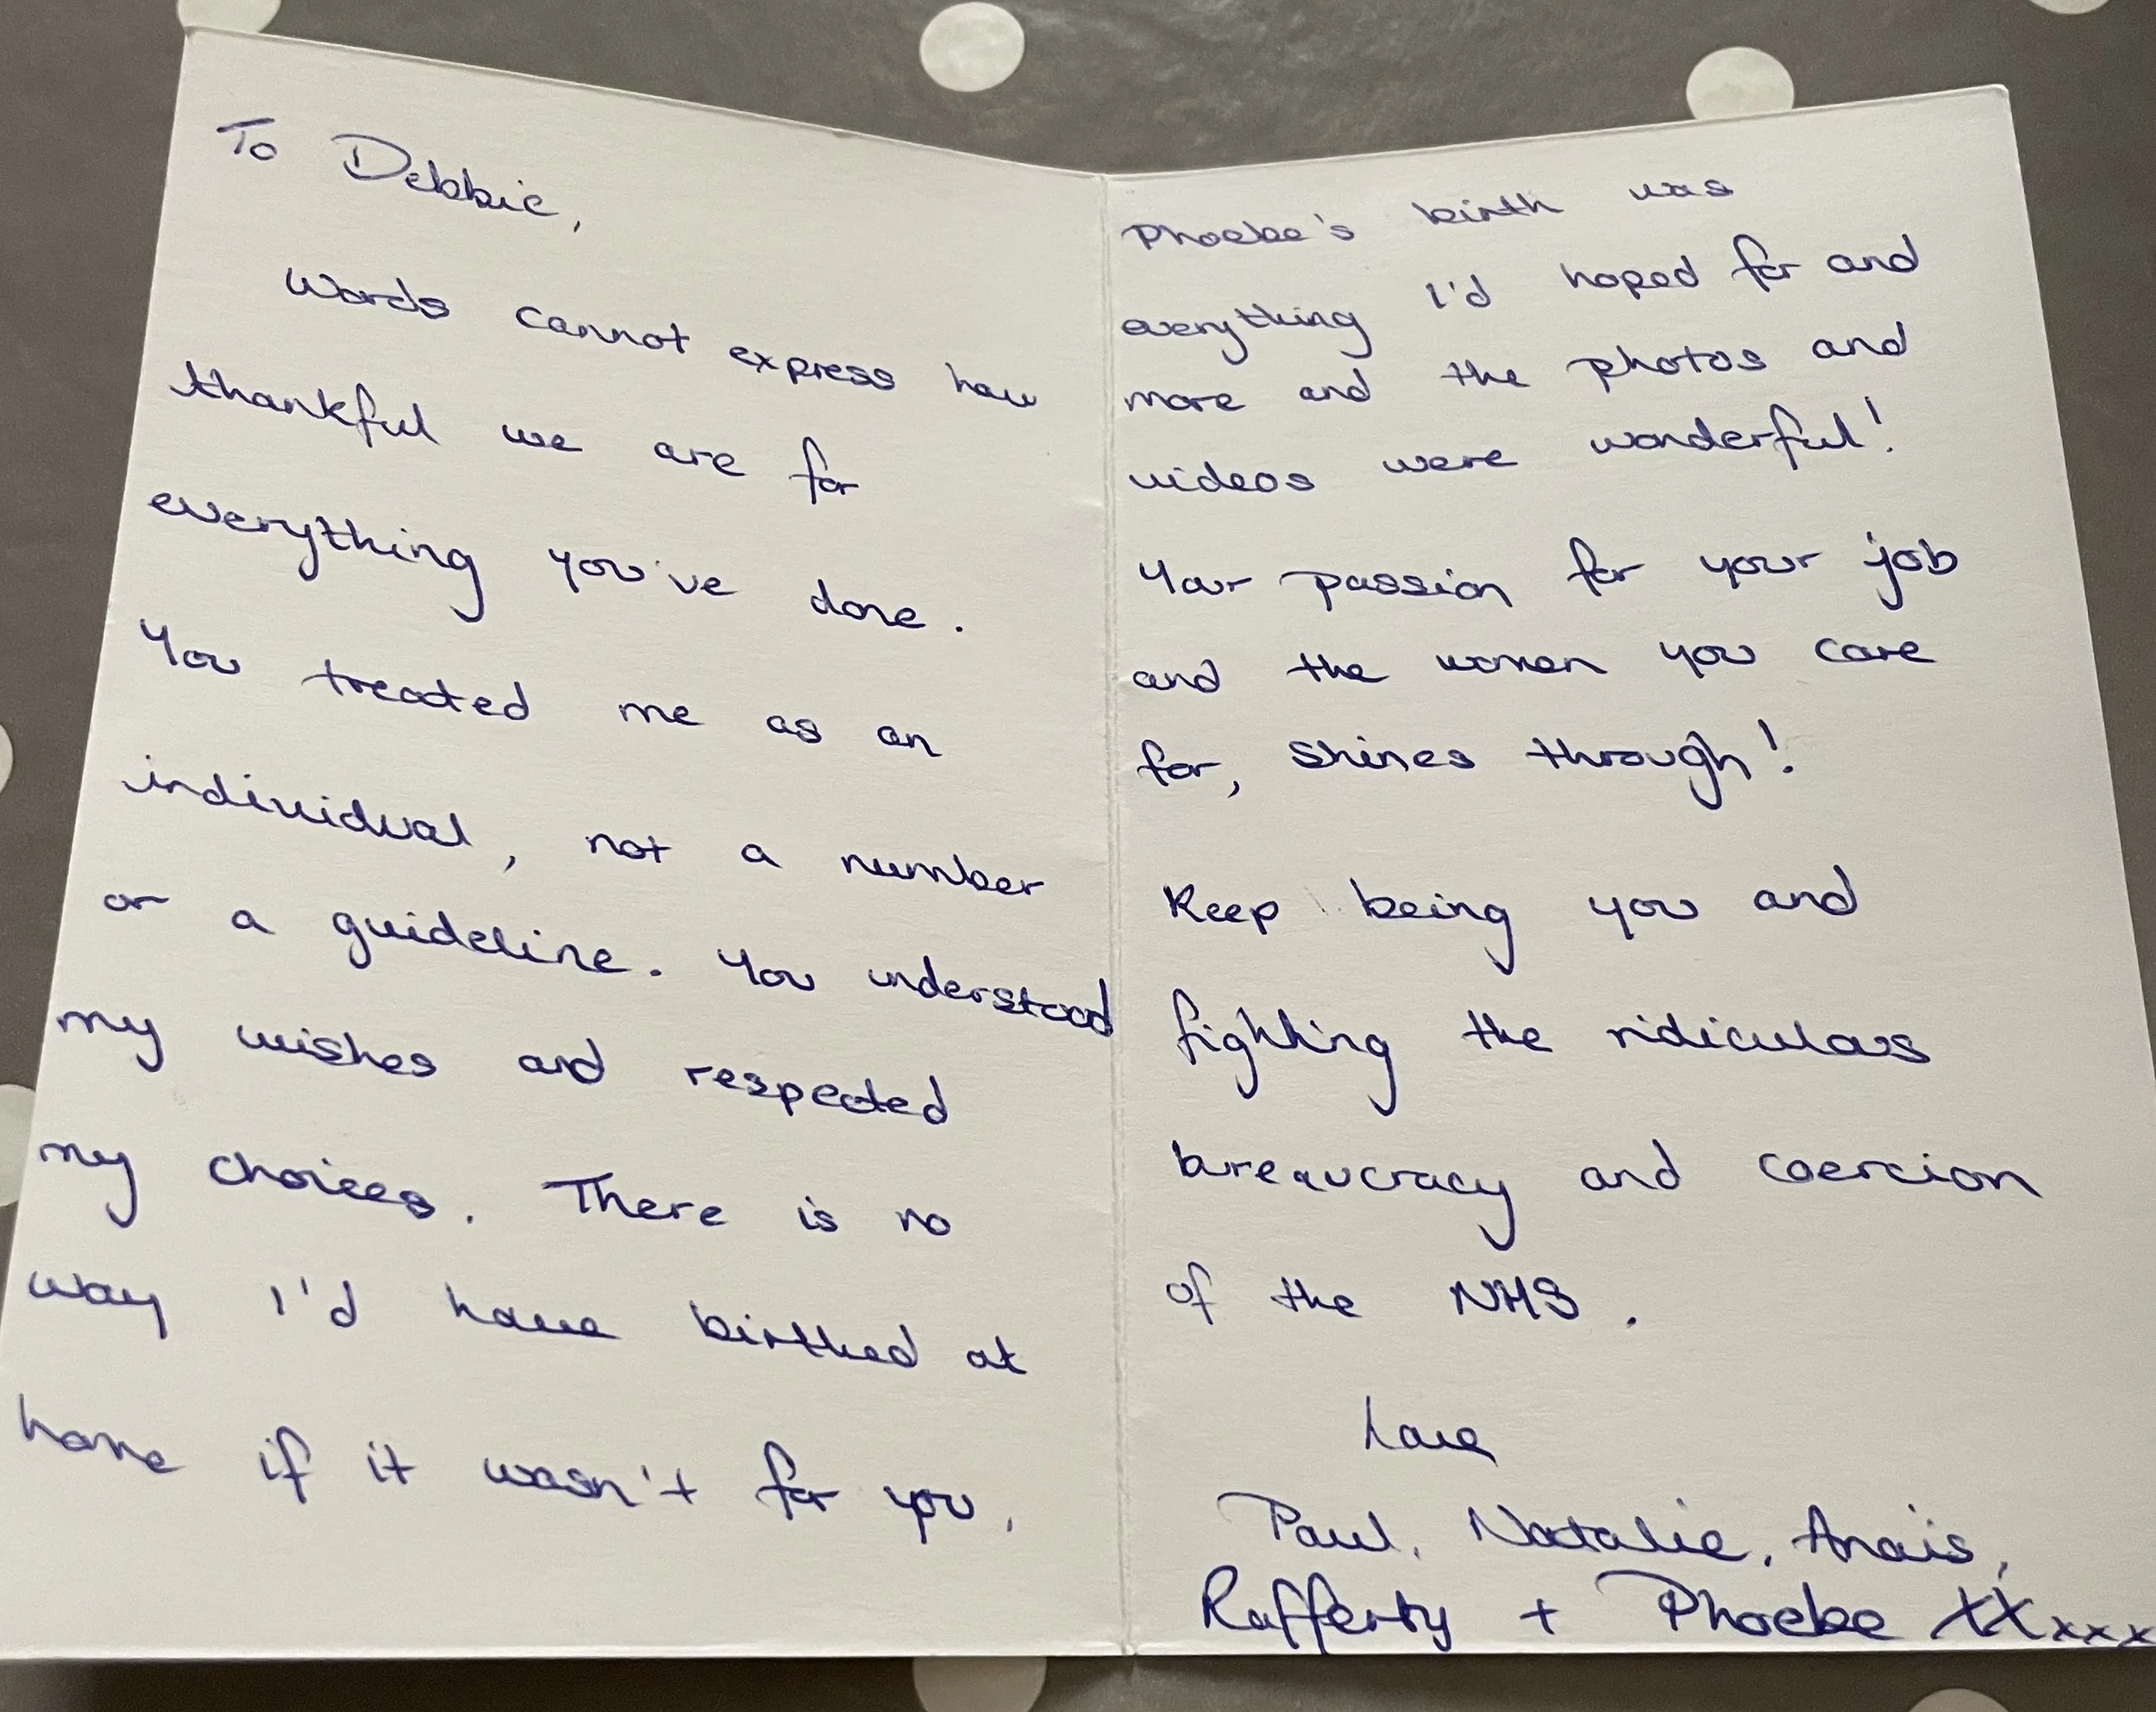 To Debbie,
Words cannot express how
thankful we are for
everything you've done.
You treated me as an
individual, not a number
or a guideline. You understood
my wishes and respected
my choices. There is no
way I'd have birthed at
home if it wasn't for you.
Phoebe's birth was
everything I'd hoped for and
more and the photos and
videos were wonderful!
Your passion for your job
and the women you care
for, shines through!
Keep being you and
fighting the ridiculous
bureaucracy and coercion
of the NHS.
Love
Paul, Natalie, Anaïs,
Rafferty + Phoebe XXxxx